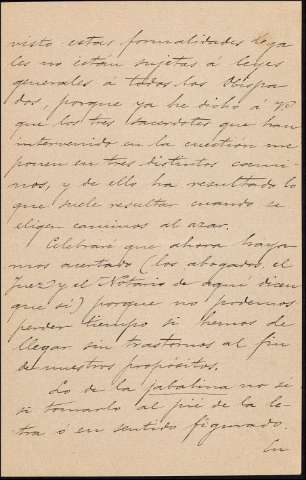 visto estas formalidades lega
les no están sujetas á leyes
generales á todos los Obispa
dos, porque ya he dicho á Vd
que los tres sacerdotes que han
intervenido en la cuestión me
ponen en tres distintos cami-
nos, y de ello ha resultado lo
que suele resultar cuando se
eligen caminos al azar.
Celebraré que ahora haya
mos acertado (los abogados, el
Juez y el Notario de aqui dicen
que si) porque no podemos
perder tiempo si hemos de
llegar sin trastornos al fin
de nuestros propósitos.
Lo de la jabalina no sé
si tomarlo al pié de la le-
tra ó en sentido figurado.
En